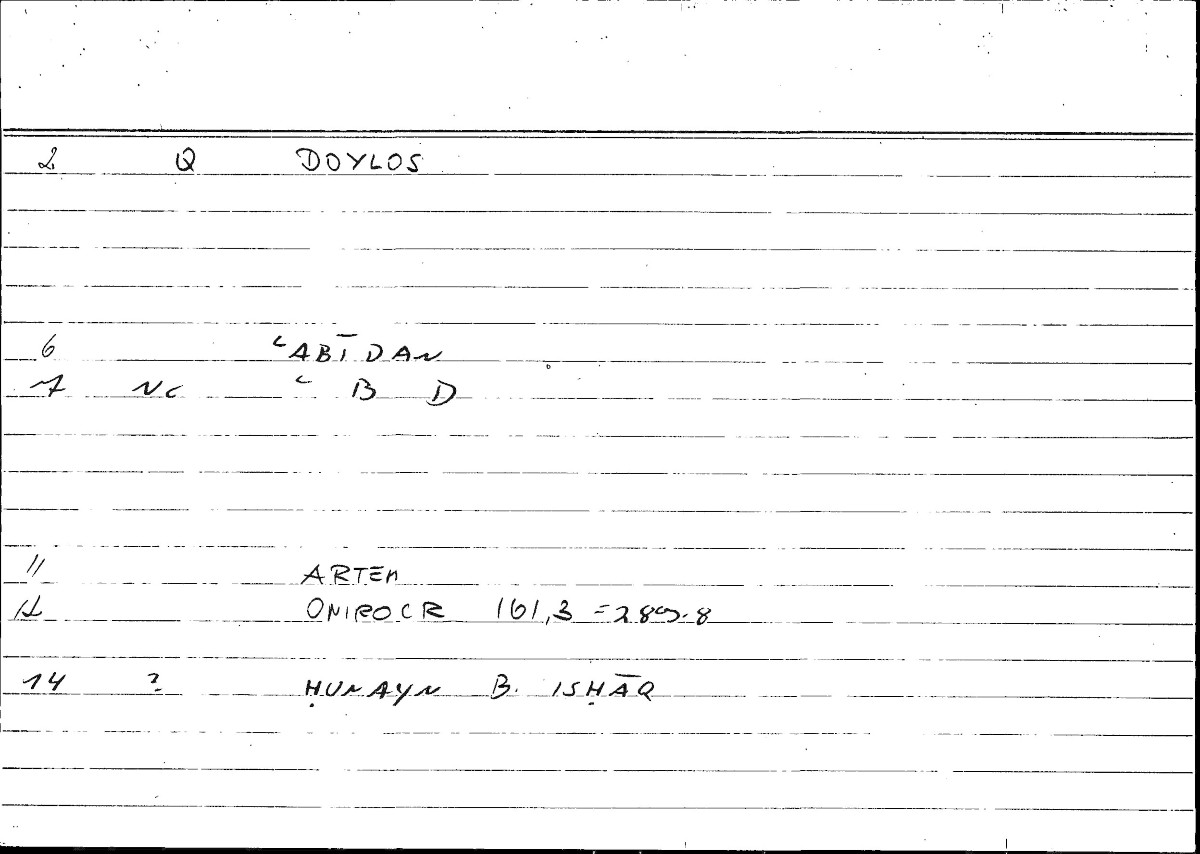 2 Q DOYLOS
6 ʿABĪDAN
7 NC ʿ B D
11 ARTEM
12 ONIROCR 161,3 = 289.8
14 ? ḤUNAYN B. ISḤĀQ